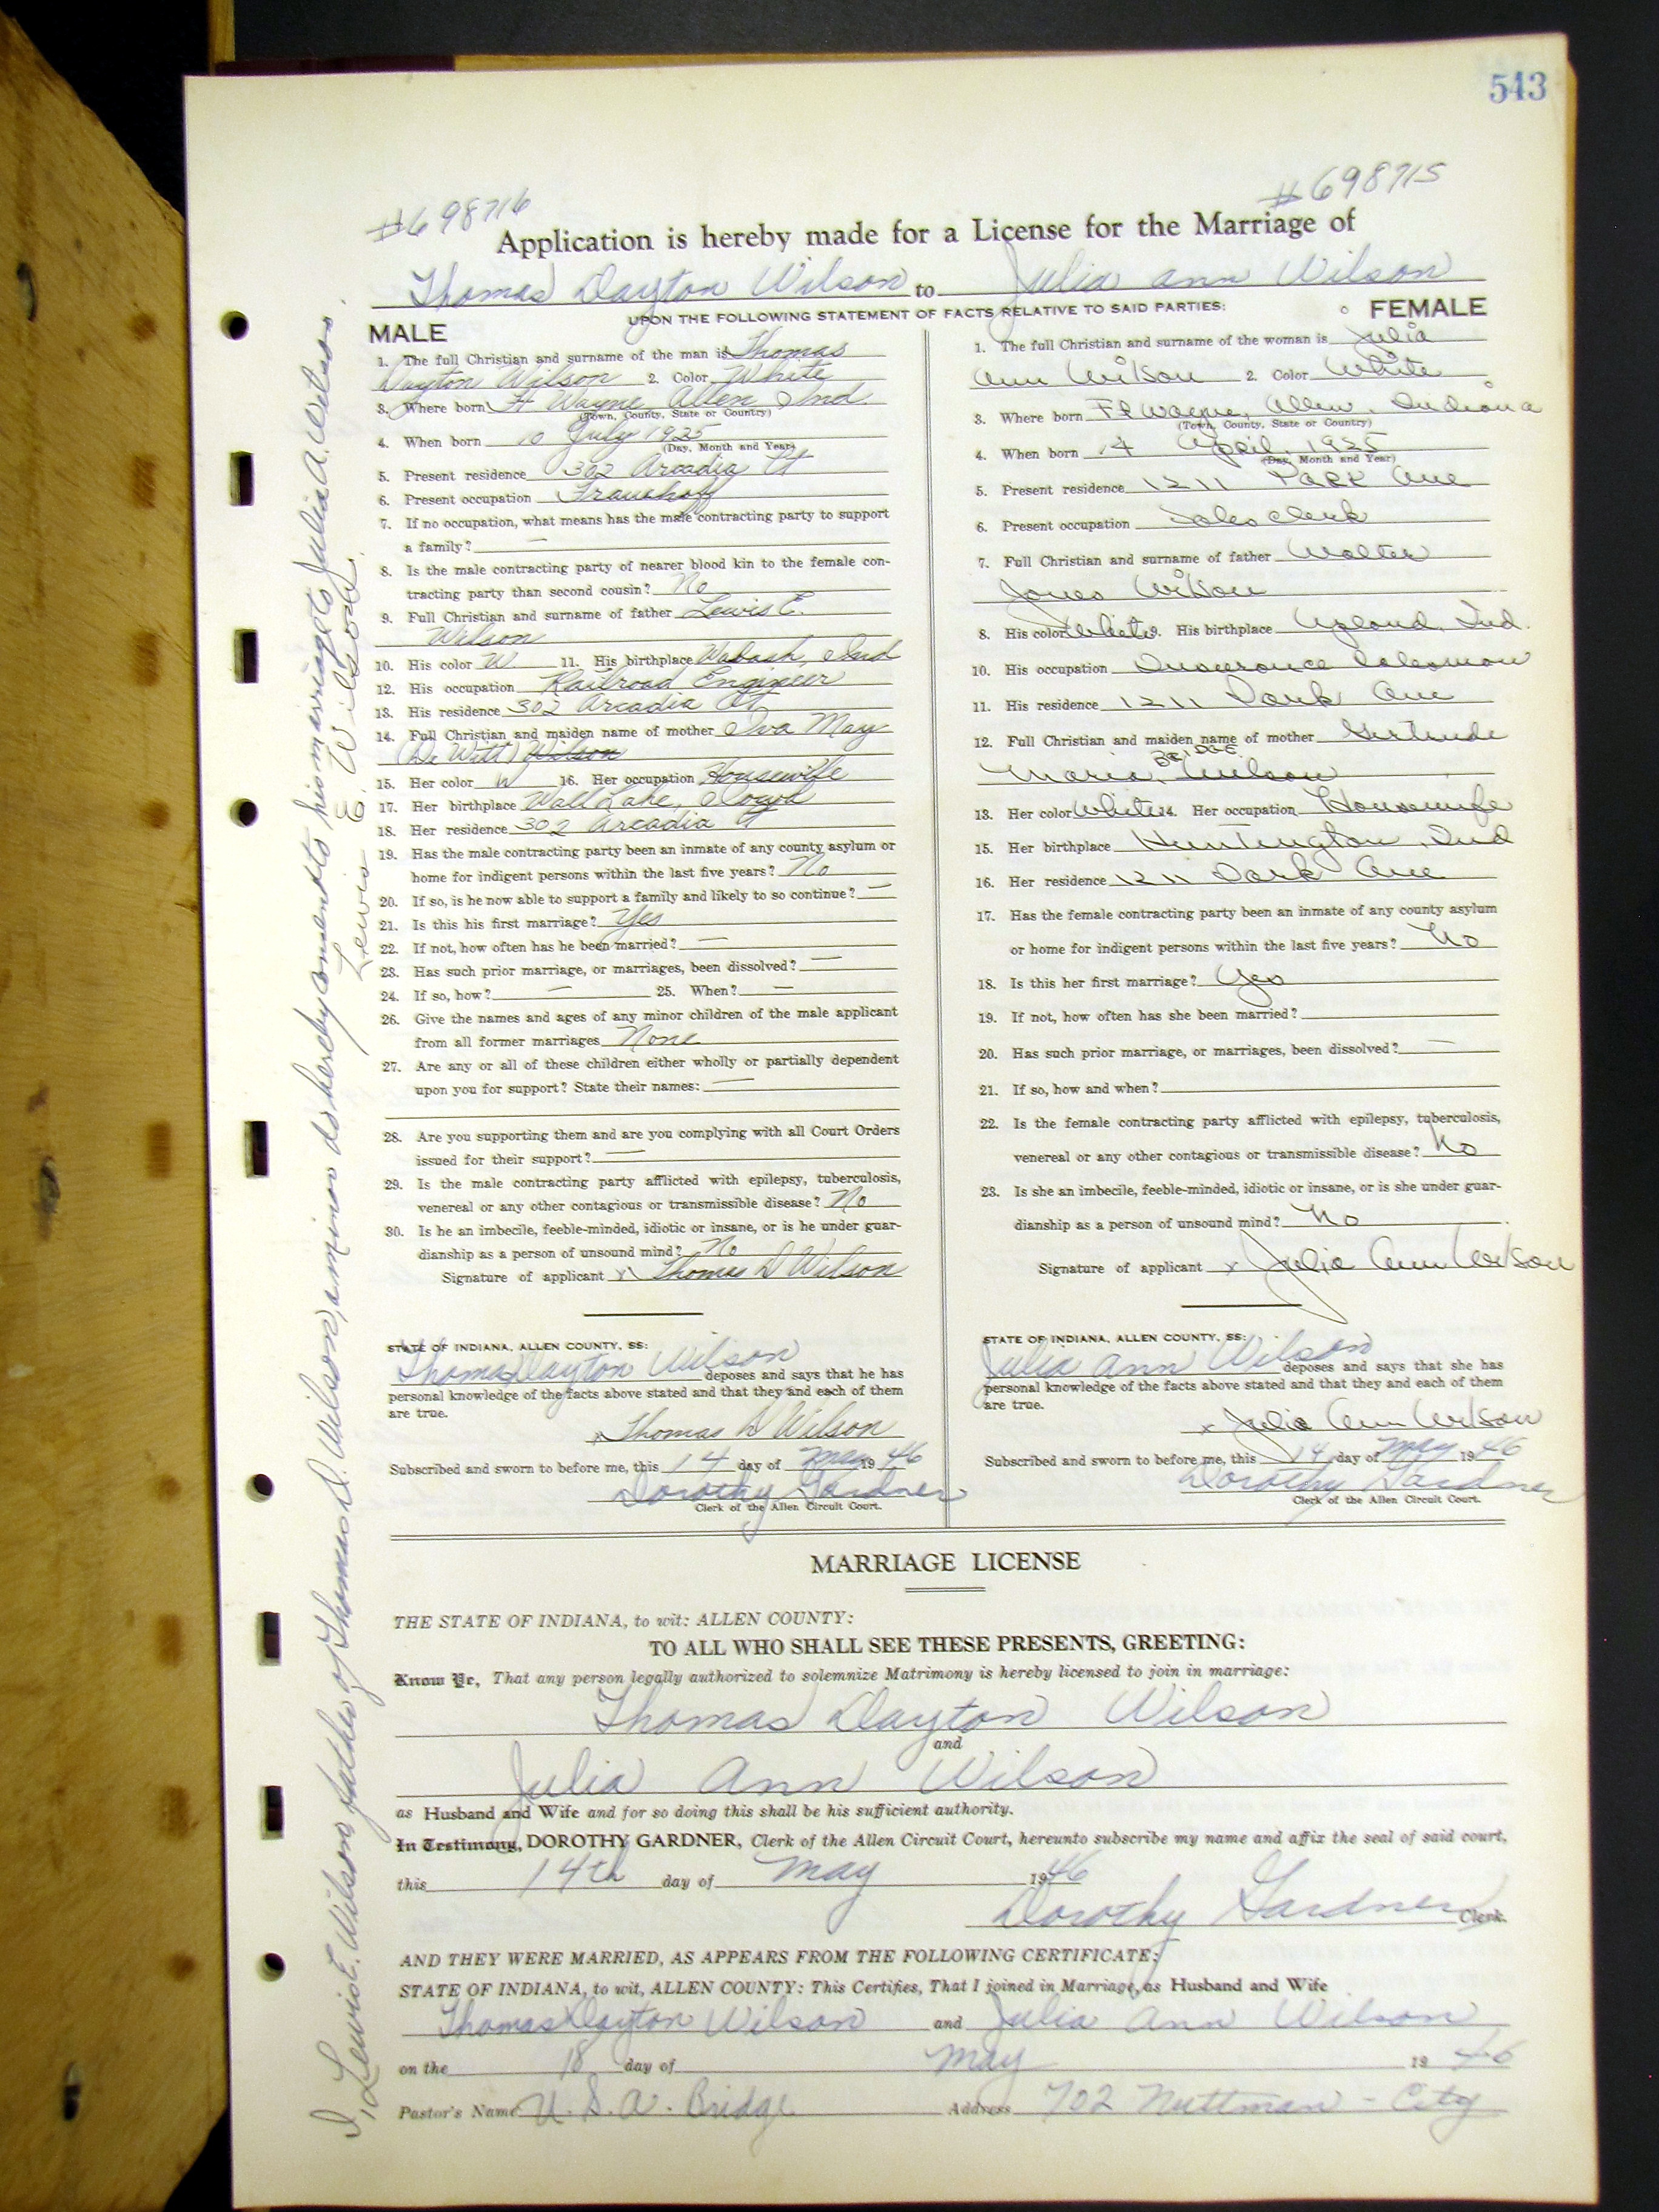 543
#698716
#698715
Application is hereby made for a License for the Marriage of
Thomas Dayton Wilson to Julia Ann Wilson
UPON THE FOLLOWING STATEMENT OF FACTS RELATIVE TO SAID PARTIES:
MALE
1. The full Christian and surname of the man is Thomas
Dayton Wilson 2. Color White
3. Where born Ft Wayne Allen Ind
(Town, County, State or Country)
4. When born 10 July 1925
(Day, Month and Year)
5. Present residence 302 Arcadia Ct
6. Present occupation
7. If no occupation, what means has the male contracting party to support
a family? —
8. Is the male contracting party of nearer blood kin to the female con-
tracting party than second cousin? No
9. Full Christian and surname of father Lewis E.
Wilson
10. His color W 11. His birthplace Wabash, Ind
12. His occupation Railroad Engineer
13. His residence 302 Arcadia Ct
14. Full Christian and maiden name of mother Iva May
(De Witt) Wilson
15. Her color W 16. Her occupation Housewife
17. Her birthplace Wall Lake, Iowa
18. Her residence 302 Arcadia Ct
19. Has the male contracting party been an inmate of any county asylum or
home for indigent persons within the last five years? No
20. If so, is he now able to support a family and likely to so continue? —
21. Is this his first marriage? Yes
22. If not, how often has he been married? —
23. Has such prior marriage, or marriages, been dissolved? —
24. If so, how? — 25. When? —
26. Give the names and ages of any minor children of the male applicant
from all former marriages None
27. Are any or all of these children either wholly or partially dependent
upon you for support? State their names: —
28. Are you supporting them and are you complying with all Court Orders
issued for their support? —
29. Is the male contracting party afflicted with epilepsy, tuberculosis,
venereal or any other contagious or transmissible disease? No
30. Is he an imbecile, feeble-minded, idiotic or insane, or is he under guar-
dianship as a person of unsound mind? No
Signature of applicant x Thomas D Wilson
STATE OF INDIANA, ALLEN COUNTY, SS:
Thomas Dayton Wilson deposes and says that he has
personal knowledge of the facts above stated and that they and each of them
are true.
x Thomas D Wilson
Subscribed and sworn to before me, this 14 day of May 1946
Dorothy Gardner
Clerk of the Allen Circuit Court.
FEMALE
1. The full Christian and surname of the woman is Julia
Ann Wilson 2. Color White
3. Where born Ft Wayne, Allen, Indiana
(Town, County, State or Country)
4. When born 14 April 1925
(Day, Month and Year)
5. Present residence 1211 Park Ave
6. Present occupation Sales clerk
7. Full Christian and surname of father Walter
Jones Wilson
8. His color White 9. His birthplace Upland, Ind.
10. His occupation Insurance Salesman
11. His residence 1211 Park Ave
12. Full Christian and maiden name of mother Gertrude
Maria Bridge Wilson
13. Her color White 14. Her occupation Housewife
15. Her birthplace Huntington, Ind
16. Her residence 1211 Park Ave
17. Has the female contracting party been an inmate of any county asylum
or home for indigent persons within the last five years? No
18. Is this her first marriage? Yes
19. If not, how often has she been married?
20. Has such prior marriage, or marriages, been dissolved? —
21. If so, how and when?
22. Is the female contracting party afflicted with epilepsy, tuberculosis,
venereal or any other contagious or transmissible disease? No
23. Is she an imbecile, feeble-minded, idiotic or insane, or is she under guar-
dianship as a person of unsound mind? No
Signature of applicant x Julia Ann Wilson
STATE OF INDIANA, ALLEN COUNTY, SS:
Julia Ann Wilson deposes and says that she has
personal knowledge of the facts above stated and that they and each of them
are true.
x Julia Ann Wilson
Subscribed and sworn to before me, this 14 day of May 1946
Dorothy Gardner
Clerk of the Allen Circuit Court.
MARRIAGE LICENSE
THE STATE OF INDIANA, to wit: ALLEN COUNTY:
TO ALL WHO SHALL SEE THESE PRESENTS, GREETING:
Know Ye, That any person legally authorized to solemnize Matrimony is hereby licensed to join in marriage:
Thomas Dayton Wilson
and
Julia Ann Wilson
as Husband and Wife and for so doing this shall be his sufficient authority.
In Testimony, DOROTHY GARDNER, Clerk of the Allen Circuit Court, hereunto subscribe my name and affix the seal of said court,
this 14th day of May 1946
Dorothy Gardner Clerk.
AND THEY WERE MARRIED, AS APPEARS FROM THE FOLLOWING CERTIFICATE:
STATE OF INDIANA, to wit, ALLEN COUNTY: This Certifies, That I joined in Marriage, as Husband and Wife
Thomas Dayton Wilson and Julia Ann Wilson
on the 18 day of May 1946
Pastor's Name U. S. A. Bridge Address 702 Nuttman - City
I, Lewis E. Wilson, father of Thomas D. Wilson, a minor do hereby consent to his marriage to Julia A. Wilson.
Lewis E. Wilson.